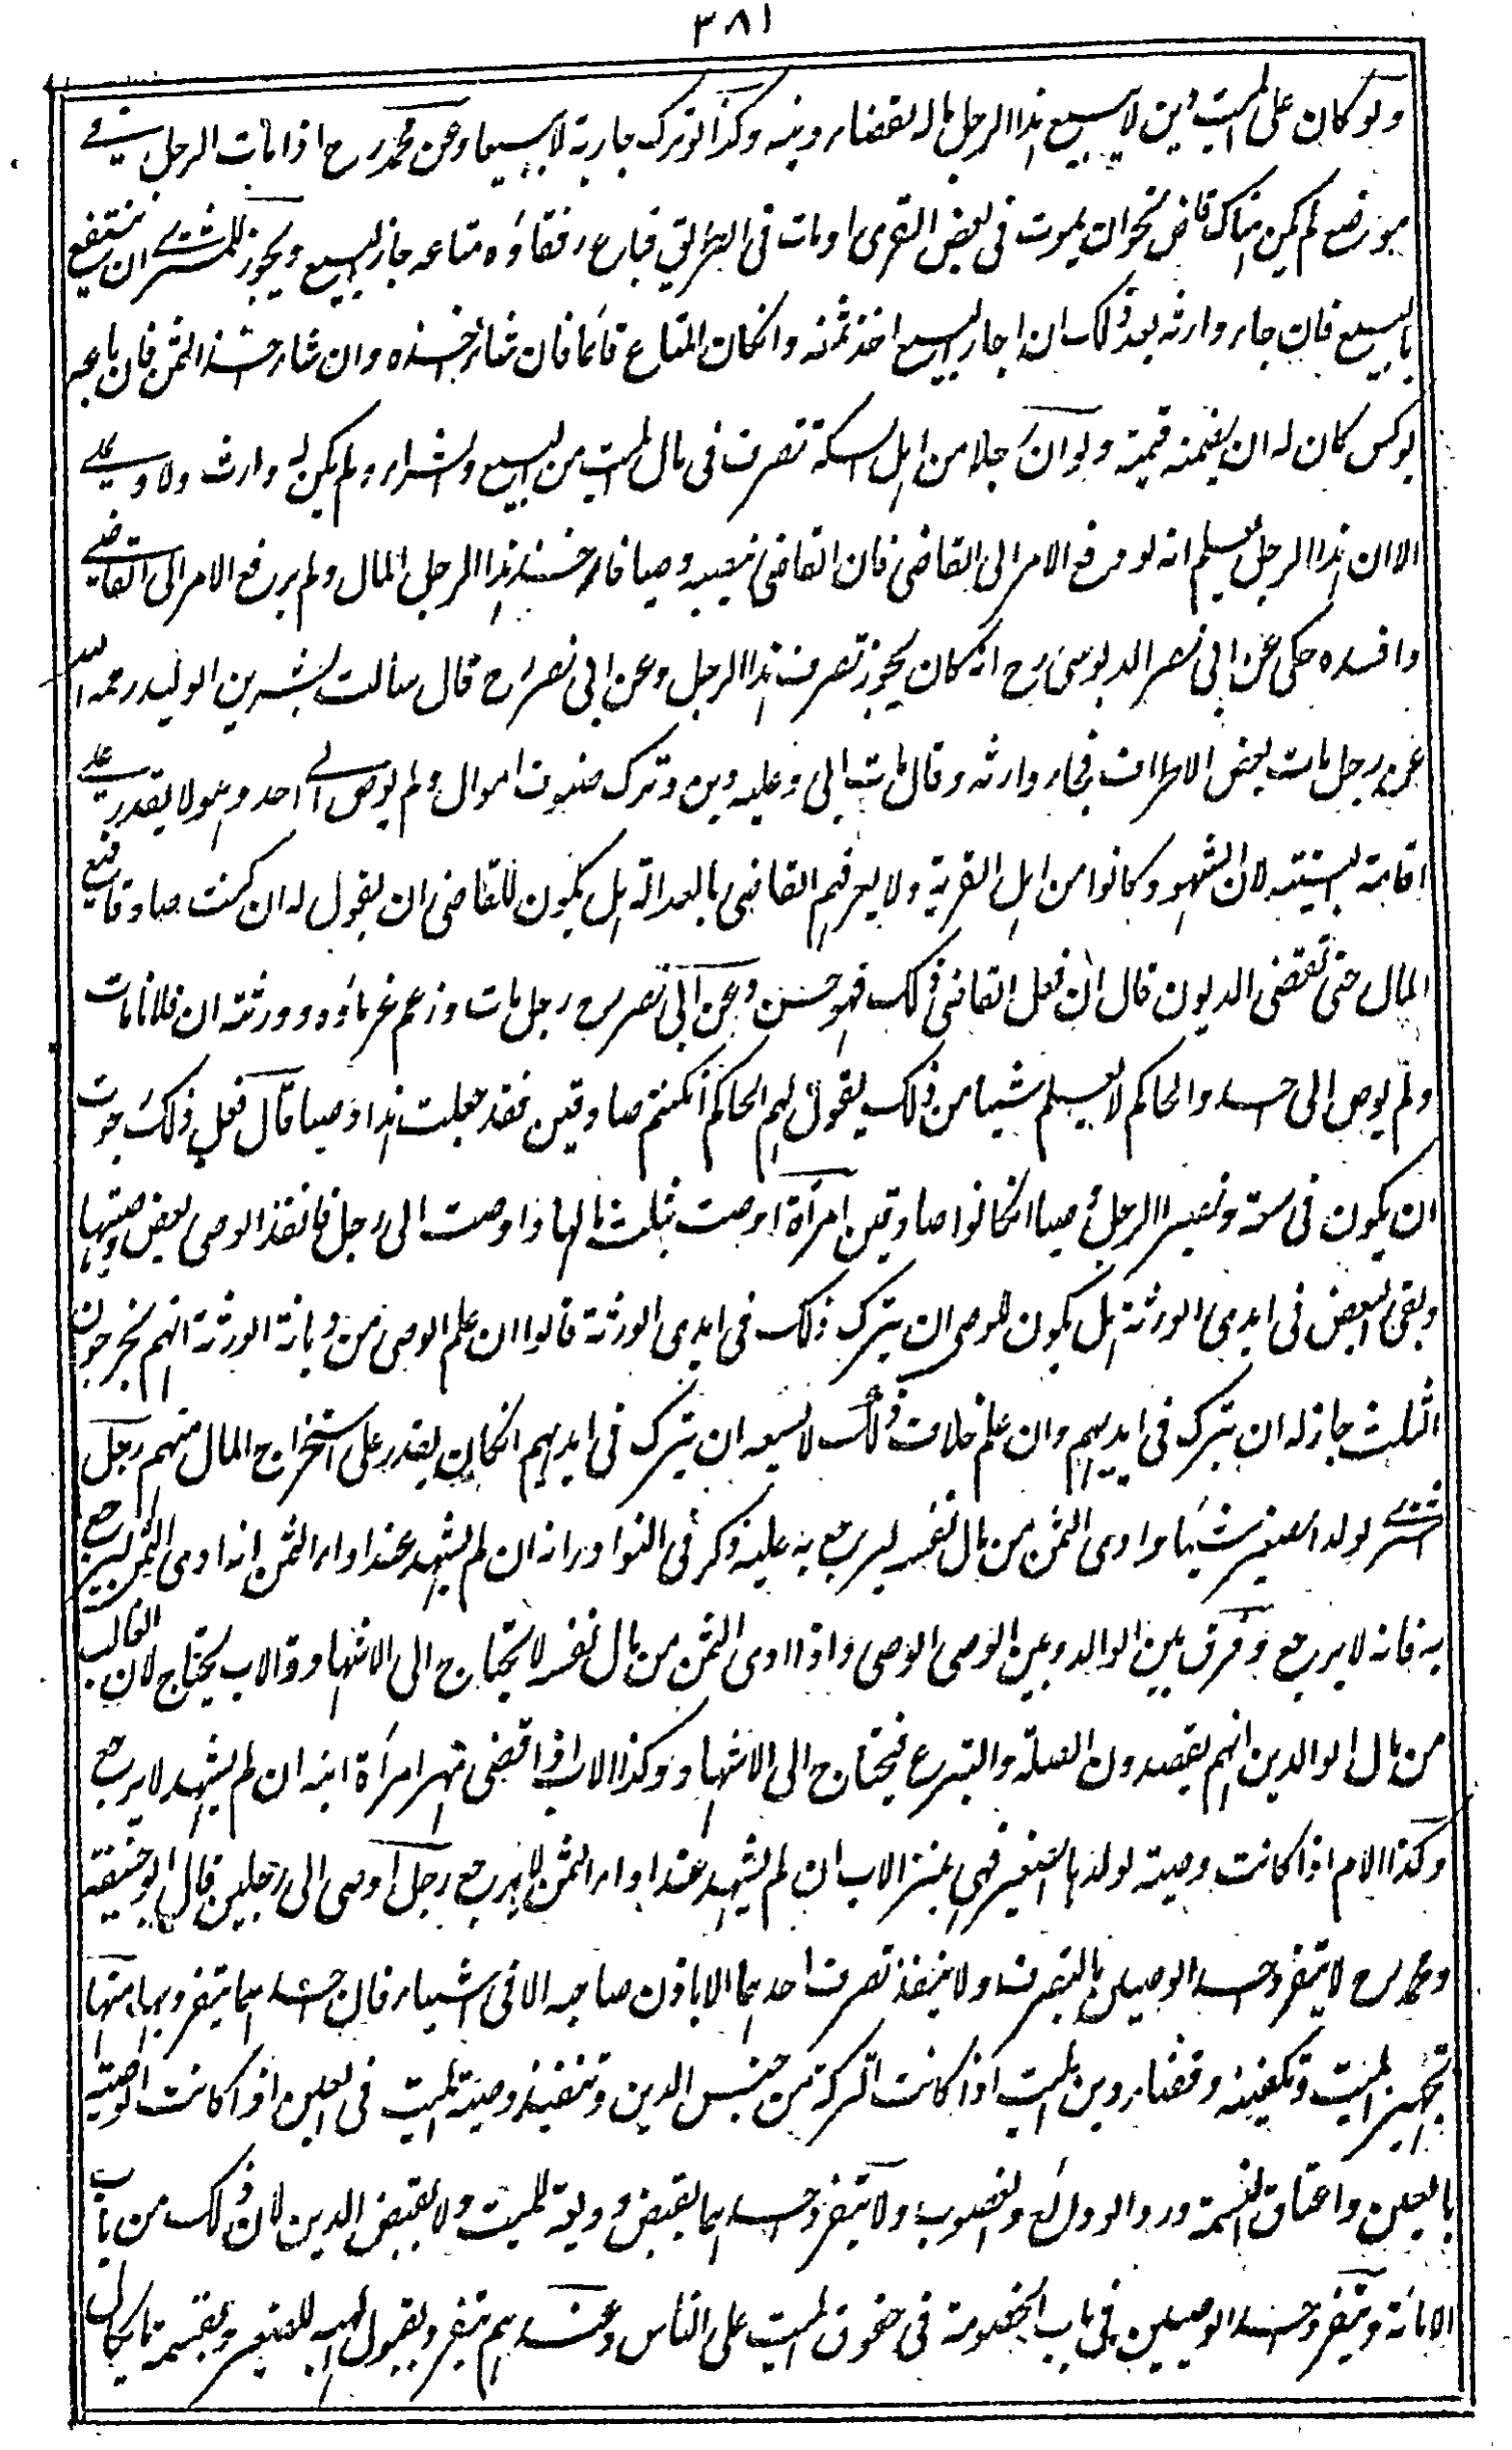 ٣٨١
ولو كان على الميت دين لا يبيع هذا الرجل ماله لقضاء دينه وكذا لو ترك جارية لا يبيعها وعن محمد رح اذا مات الرجل في
موضع لم يكن هناك قاض نحو ان يموت فى بعض القرى او مات فى الطريق فباع رفقاؤه متاعه جاز البيع ويجوز للمشترى ان ينتفع
بالبيع فان جاء وارثه بعد ذلك ان اجاز البيع اخذ ثمنه وانكان المتاع قائما فان شاء اخذه وان شاء اخذ الثمن فان باعه
بوكس كان له ان يضمنه قيمته ولو ان رجلا من اهل السكة تصرف فى مال الميت من البيع والشراء ولم يكن له وارث ولا وصى
الا ان هذا الرجل يعلم انه لو رفع الامر الى القاضى فان القاضى ينصبه وصيا فاخذ هذا الرجل المال ولم يرفع الامر الى القاضى
وافسده حكى عن ابى نصر الدبوسى رح انه كان يجوز تصرف هذا الرجل وعن ابى نصر رح قال سألت بشر بن الوليد رحمه الله
عن رجل مات ببعض الاطراف فجاء وارثه وقال مات ابى وعليه دين وترك صنوف اموال ولم يوص الى احد وهو لا يقدر على
اقامة البينة لان الشهود كانوا من اهل القرية ولا يعرفهم القاضى بالعدالة هل يكون للقاضى ان يقول له ان كنت صادقا فبع
المال حتى تقضى الديون قال ان فعل القاضى ذلك فهو حسن وعن ابى نصر رح رجل مات وزعم غرماؤه وورثته ان فلانا مات
ولم يوص الى احد والحاكم لا يعلم شيئا من ذلك يقول لهم الحاكم ان كنتم صادقين فقد جعلت هذا وصيا قال فعل ذلك رجوت
ان يكون فى سعة ويصير الرجل وصيا انكانوا صادقين امرأة اوصت بثلث مالها واوصت الى رجل فانفذ الوصى بعض وصيتها
وبقى البعض فى ايدى الورثة هل يكون للوصى ان يترك ذلك فى ايدى الورثة قالوا ان علم الوصى من ديانة الورثة انهم يخرجون
الثلث جاز له ان يترك فى ايديهم وان علم خلاف ذلك لا يسعه ان يترك فى ايديهم انكان يقدر على استخراج المال منهم رجل
اشترى لولده الصغير شيئا وادى الثمن من مال نفسه ليرجع به عليه ذكر فى النوادر انه ان لم يشهد عند اداء الثمن انه ادى الثمن ليرجع
به فانه لا يرجع وفرق بين الوالد وبين الوصى الوصى واذا ادى الثمن من مال نفسه لا يحتاج الى الاشهاد والاب يحتاج لان الغالب
من مال الوالدين انهم يقصدون الصلة والتبرع فيحتاج الى الاشهاد وكذا الاب اذا قضى مهر امرأة ابنه ان لم يشهد لا يرجع
وكذا الام اذا كانت وصية لولدها الصغير فهى بمنزلة الاب ان لم يشهد عند اداء الثمن لا يرجع رجل اوصى الى رجلين قال ابو حنيفة
ومحمد رح لا يتفرد احد الوصيين بالتصرف ولا ينفذ تصرف احدهما الا باذن صاحبه الا فى اشياء فان احدهما يتفرد بها منها
تجهيز الميت وتكفينه وقضاء دين الميت اذا كانت التركة من جنس الدين وتنفيذ وصية الميت فى العين اذا كانت الوصية
بالعين واعتاق النسمة ورد الودائع والغصوب ولا يتفرد احدهما بقبض وديعة الميت ولا بقبض الدين لان ذلك من باب
الامانة ويتفرد احد الوصيين فى باب الخصومة فى حقوق الميت على الناس وعندهم يتفرد بقبول الهبة للصغير وبقسمة ما يكال